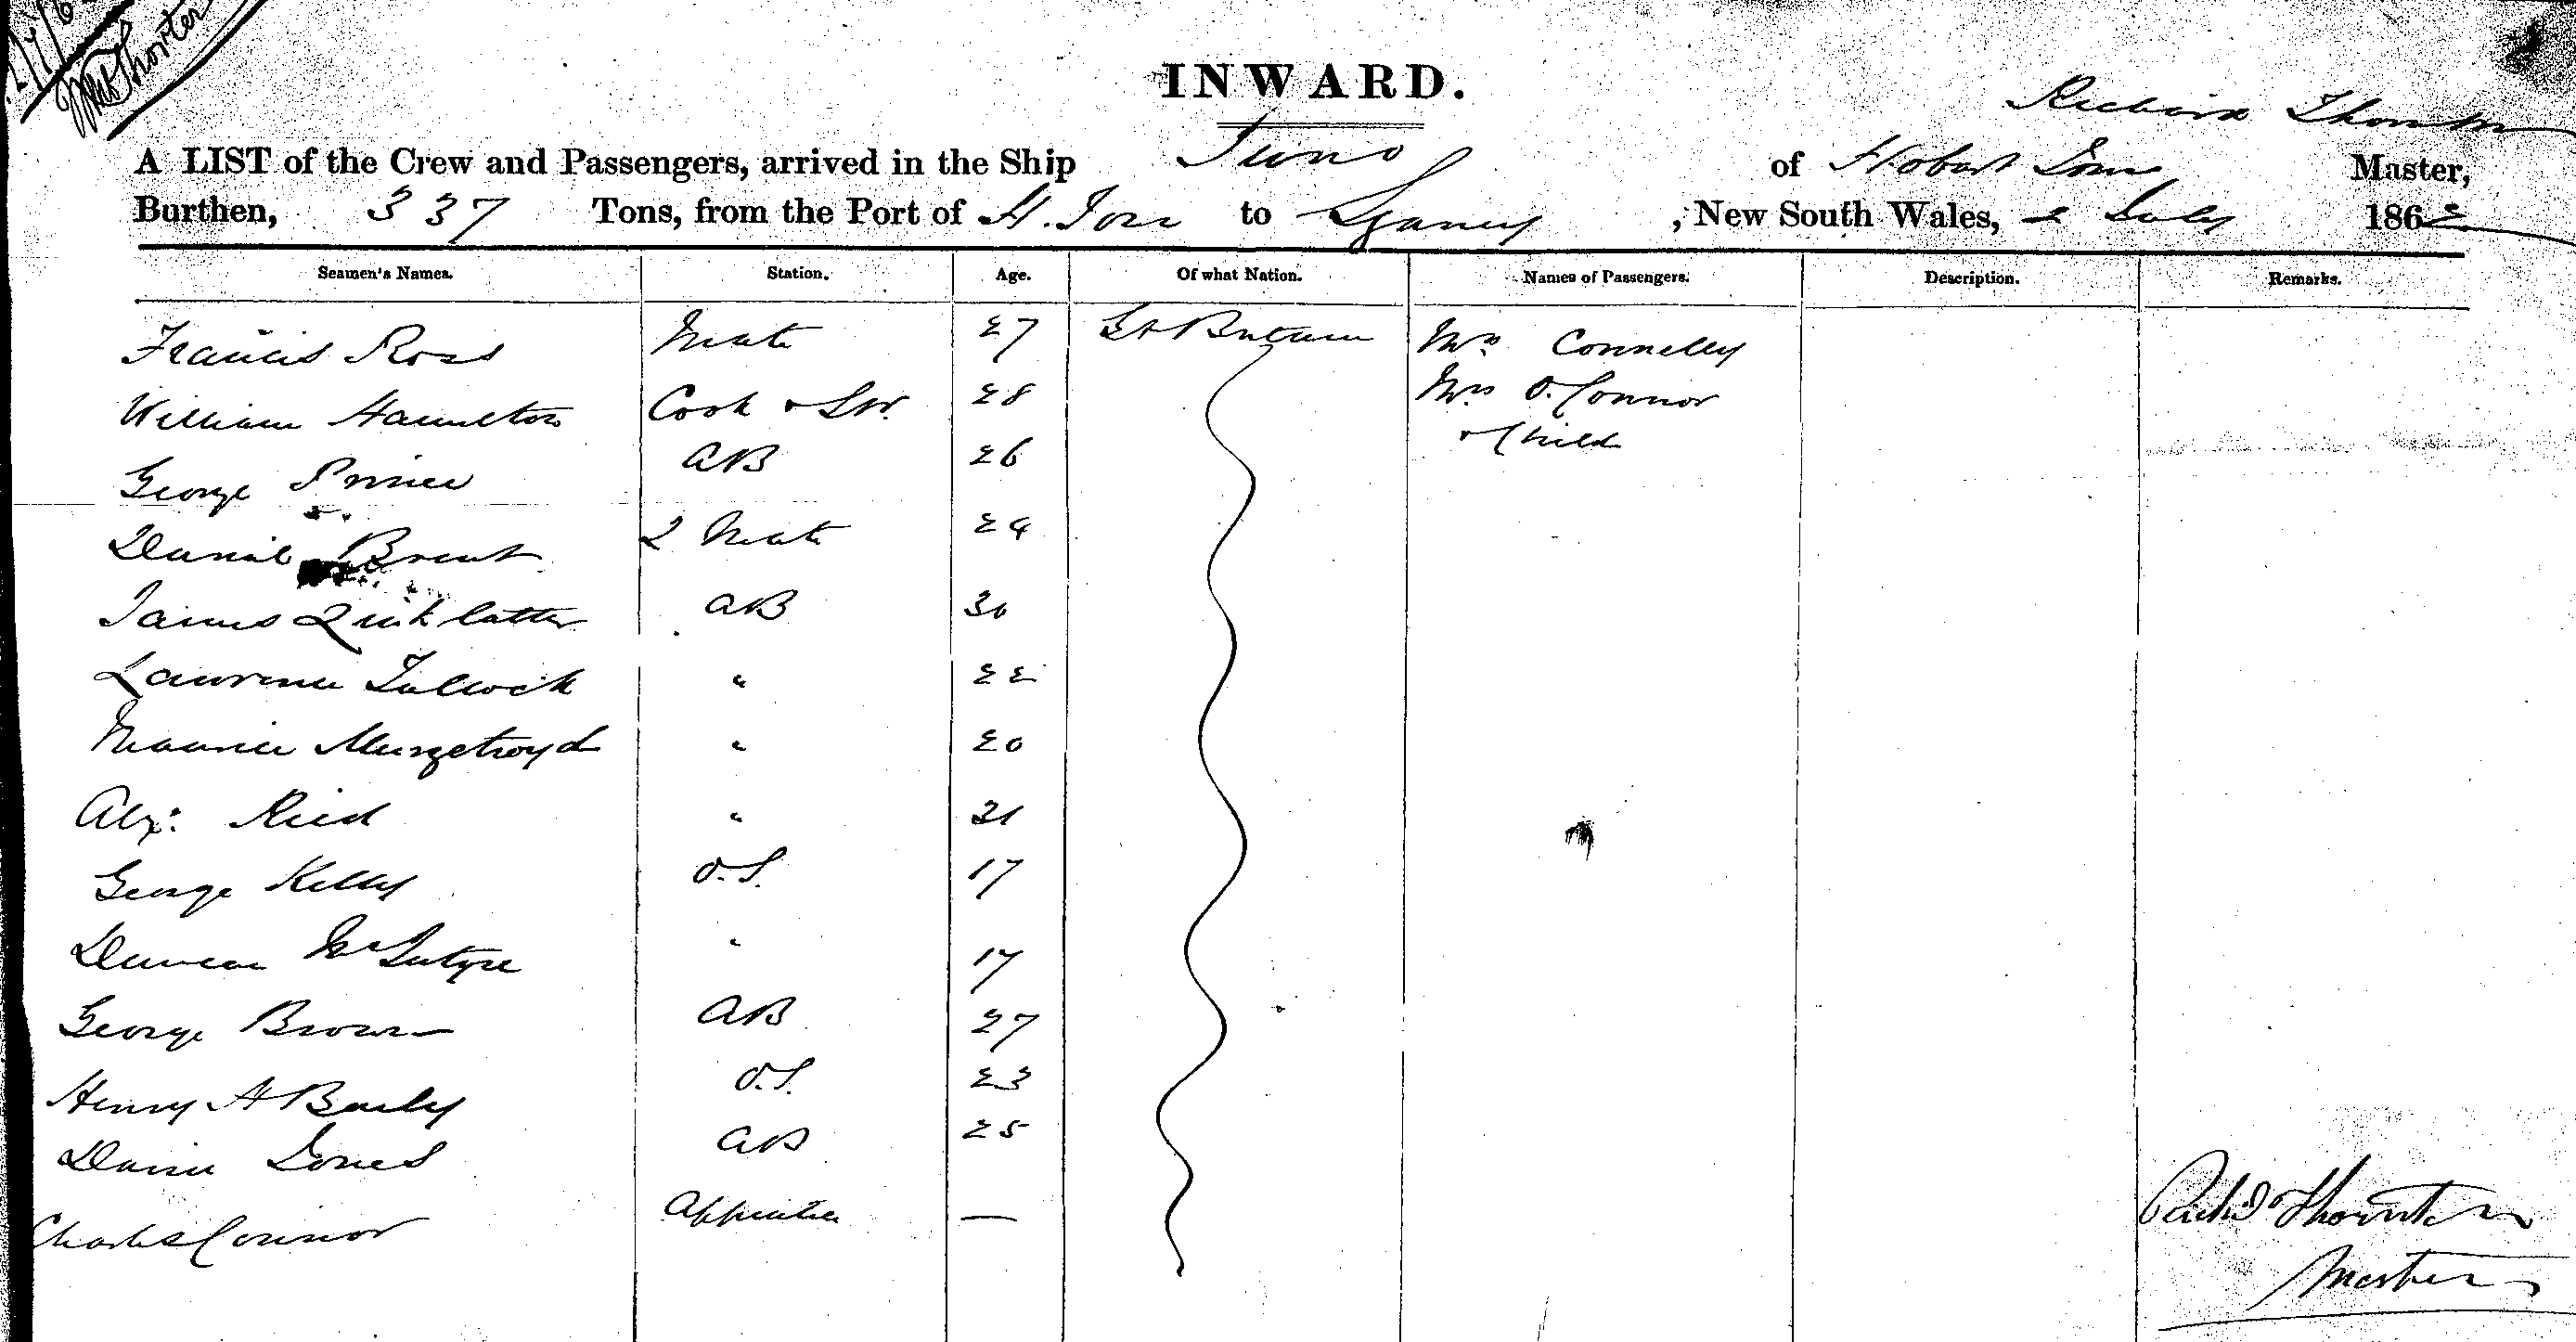 INWARD.
Richard Thornton
A LIST of the Crew and Passengers, arrived in the Ship Juno of Hobart Town Master,
Burthen, 337 Tons, from the Port of H. Town to Sydney, New South Wales, 2 July 1862
Seamen's Names. Station. Age. Of what Nation. Names of Passengers. Description. Remarks.
Francis Ross Mate 27 Gt Britain Mrs Connelly
William Hamilton Cook & Stw. 28 Mrs O. Connor
& Child
George Prince AB 26
Daniel Brent 2 Mate 24
James Linklatter AB 30
Lawrence Tulloch " 22
Maurice Murgetroyd " 20
Alexr. Reid " 21
George Kelly O.S. 17
Duncan McIntyre " 17
George Brown AB 27
Henry A Barly O.S. 23
David Jones AB 25
Charles Connor Apprentice —
Richd Thornton
Master